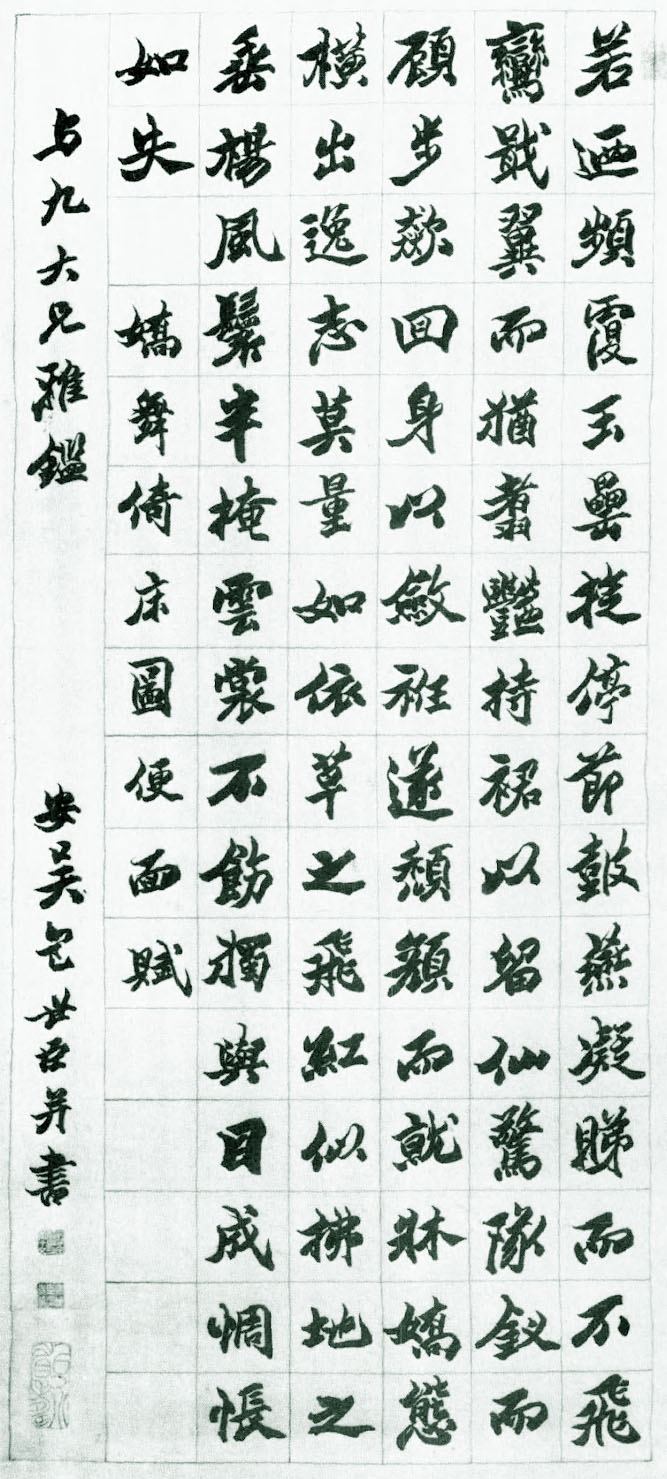 若迺頻覆玉罍徒停節鼓燕凝睇而不飛
鸞戢翼而猶翥豔持裾以留仙驚隊釵而
顧步欻回身以斂袵遂頳顏而就牀嬌態
橫出逸志莫量如依草之飛紅似拂地之
垂楊風鬟半掩雲裳不飭獨與目成惆悵
如失 嬌舞倚床圖便面賦
与九大兄雅鑑
安吳包世臣并書